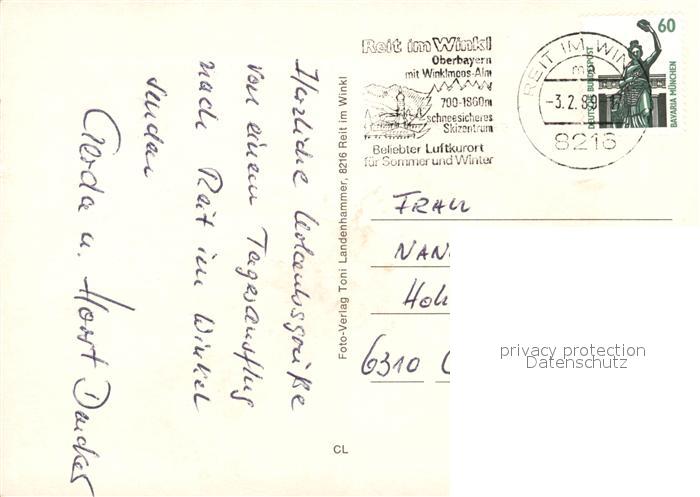 Herzliche Urlaubsgrüße
von einem Tagesausflug
nach Reit im Winkel
senden
Gerda u. Horst
Foto-Verlag Toni Landenhammer, 8216 Reit im Winkl
CL
Reit im Winkl
Oberbayern
mit Winklmoos-Alm
700-1860m
schneesicheres
Skizentrum
Beliebter Luftkurort
für Sommer und Winter
REIT IM WIN
-3.2.89
8216
60
DEUTSCHE BUNDESPOST
BAVARIA MÜNCHEN
FRAU
NAN
Hoh
6310
privacy protection
Datenschutz